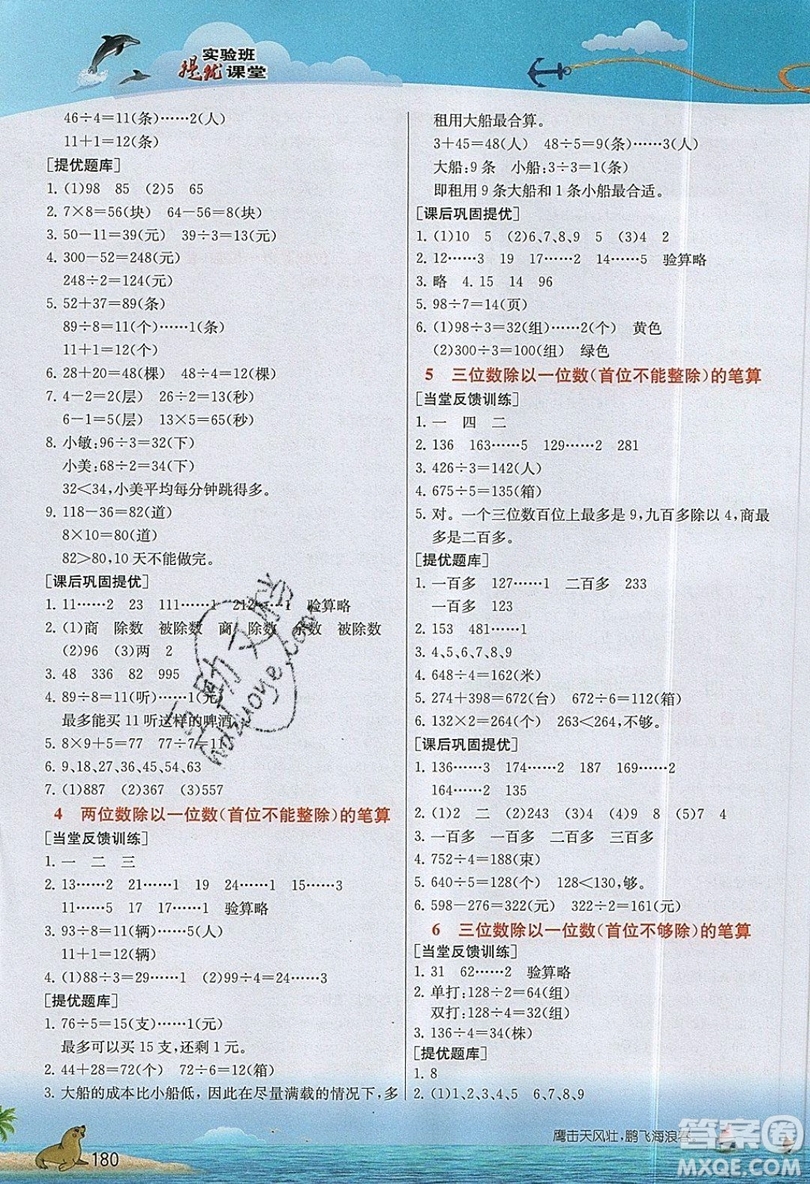 实验班
提优课堂
46÷4=11(条)……2(人)
11+1=12(条)
[提优题库]
1. (1)98 85 (2)5 65
2. 7×8=56(块) 64-56=8(块)
3. 50-11=39(元) 39÷3=13(元)
4. 300-52=248(元)
248÷2=124(元)
5. 52+37=89(条)
89÷8=11(个)……1(条)
11+1=12(个)
6. 28+20=48(棵) 48÷4=12(棵)
7. 4-2=2(层) 26÷2=13(秒)
6-1=5(层) 13×5=65(秒)
8. 小敏:96÷3=32(下)
小美:68÷2=34(下)
32<34,小美平均每分钟跳得多。
9. 118-36=82(道)
8×10=80(道)
82>80,10天不能做完。
[课后巩固提优]
1. 11……2 23 111……1 212……1 验算略
2. (1)商 除数 被除数 商 除数 余数 被除数
(2)96 (3)两 2
3. 48 338 82 995
4. 89÷8=11(听)……1(元)
最多能买11听这样的啤酒。
5. 8×9+5=77 77÷7=11
6. 9、18、27、36、45、54、63
7. (1)887 (2)367 (3)557
4 两位数除以一位数(首位不能整除)的笔算
[当堂反馈训练]
1. 一 二 三
2. 13……2 21……1 19 24……1 15……3
11……5 17 17……1 验算略
3. 93÷8=11(辆)……5(人)
11+1=12(辆)
4. (1)88÷3=29……1 (2)99÷4=24……3
[提优题库]
1. 76÷5=15(支)……1(元)
最多可以买15支,还剩1元。
2. 44+28=72(箱) 72÷6=12(箱)
3. 大船的成本比小船低,因此在尽量满载的情况下,多
租用大船最合算。
3+45=48(人) 48÷5=9(条)……3(人)
大船:9条 小船:3÷3=1(条)
即租用9条大船和1条小船最合适。
[课后巩固提优]
1. (1)10 5 (2)6、7、8、9 5 (3)4 2
2. 12……3 19 17……2 12……5 验算略
3. 略 4. 15 14 96
5. 98÷7=14(页)
6. (1)98÷3=32(组)……2(个) 黄色
(2)300÷3=100(组) 绿色
5 三位数除以一位数(首位不能整除)的笔算
[当堂反馈训练]
1. 一 四 二
2. 136 163……5 129……2 281
3. 426÷3=142(人)
4. 675÷5=135(箱)
5. 对。一个三位数百位上最多是9,九百多除以4,商最
多是二百多。
[提优题库]
1. 一百多 127……1 二百多 233
一百多 123
2. 153 481……1
3. 4、5、6、7、8、9
4. 648÷4=162(米)
5. 274+398=672(台) 672÷6=112(箱)
6. 132×2=264(个) 263<264,不够。
[课后巩固提优]
1. 136……3 174……2 187 169……2
164……2 135
2. (1)2 二 (2)243 (3)4 (4)5 (5)7 4
3. 一百多 一百多 二百多 三百多
4. 752÷4=188(束)
5. 640÷5=128(个) 128<130,够。
6. 598-276=322(元) 322÷2=161(元)
6 三位数除以一位数(首位不够除)的笔算
[当堂反馈训练]
1. 31 62……2 验算略
2. 单打:128÷2=64(组)
双打:128÷4=32(组)
3. 136÷4=34(株)
[提优题库]
1. 8
2. (1)1、2、3、4、5 6、7、8、9
鹰击天风壮,鹏飞海浪春
180
答案圈
MXQE.COM